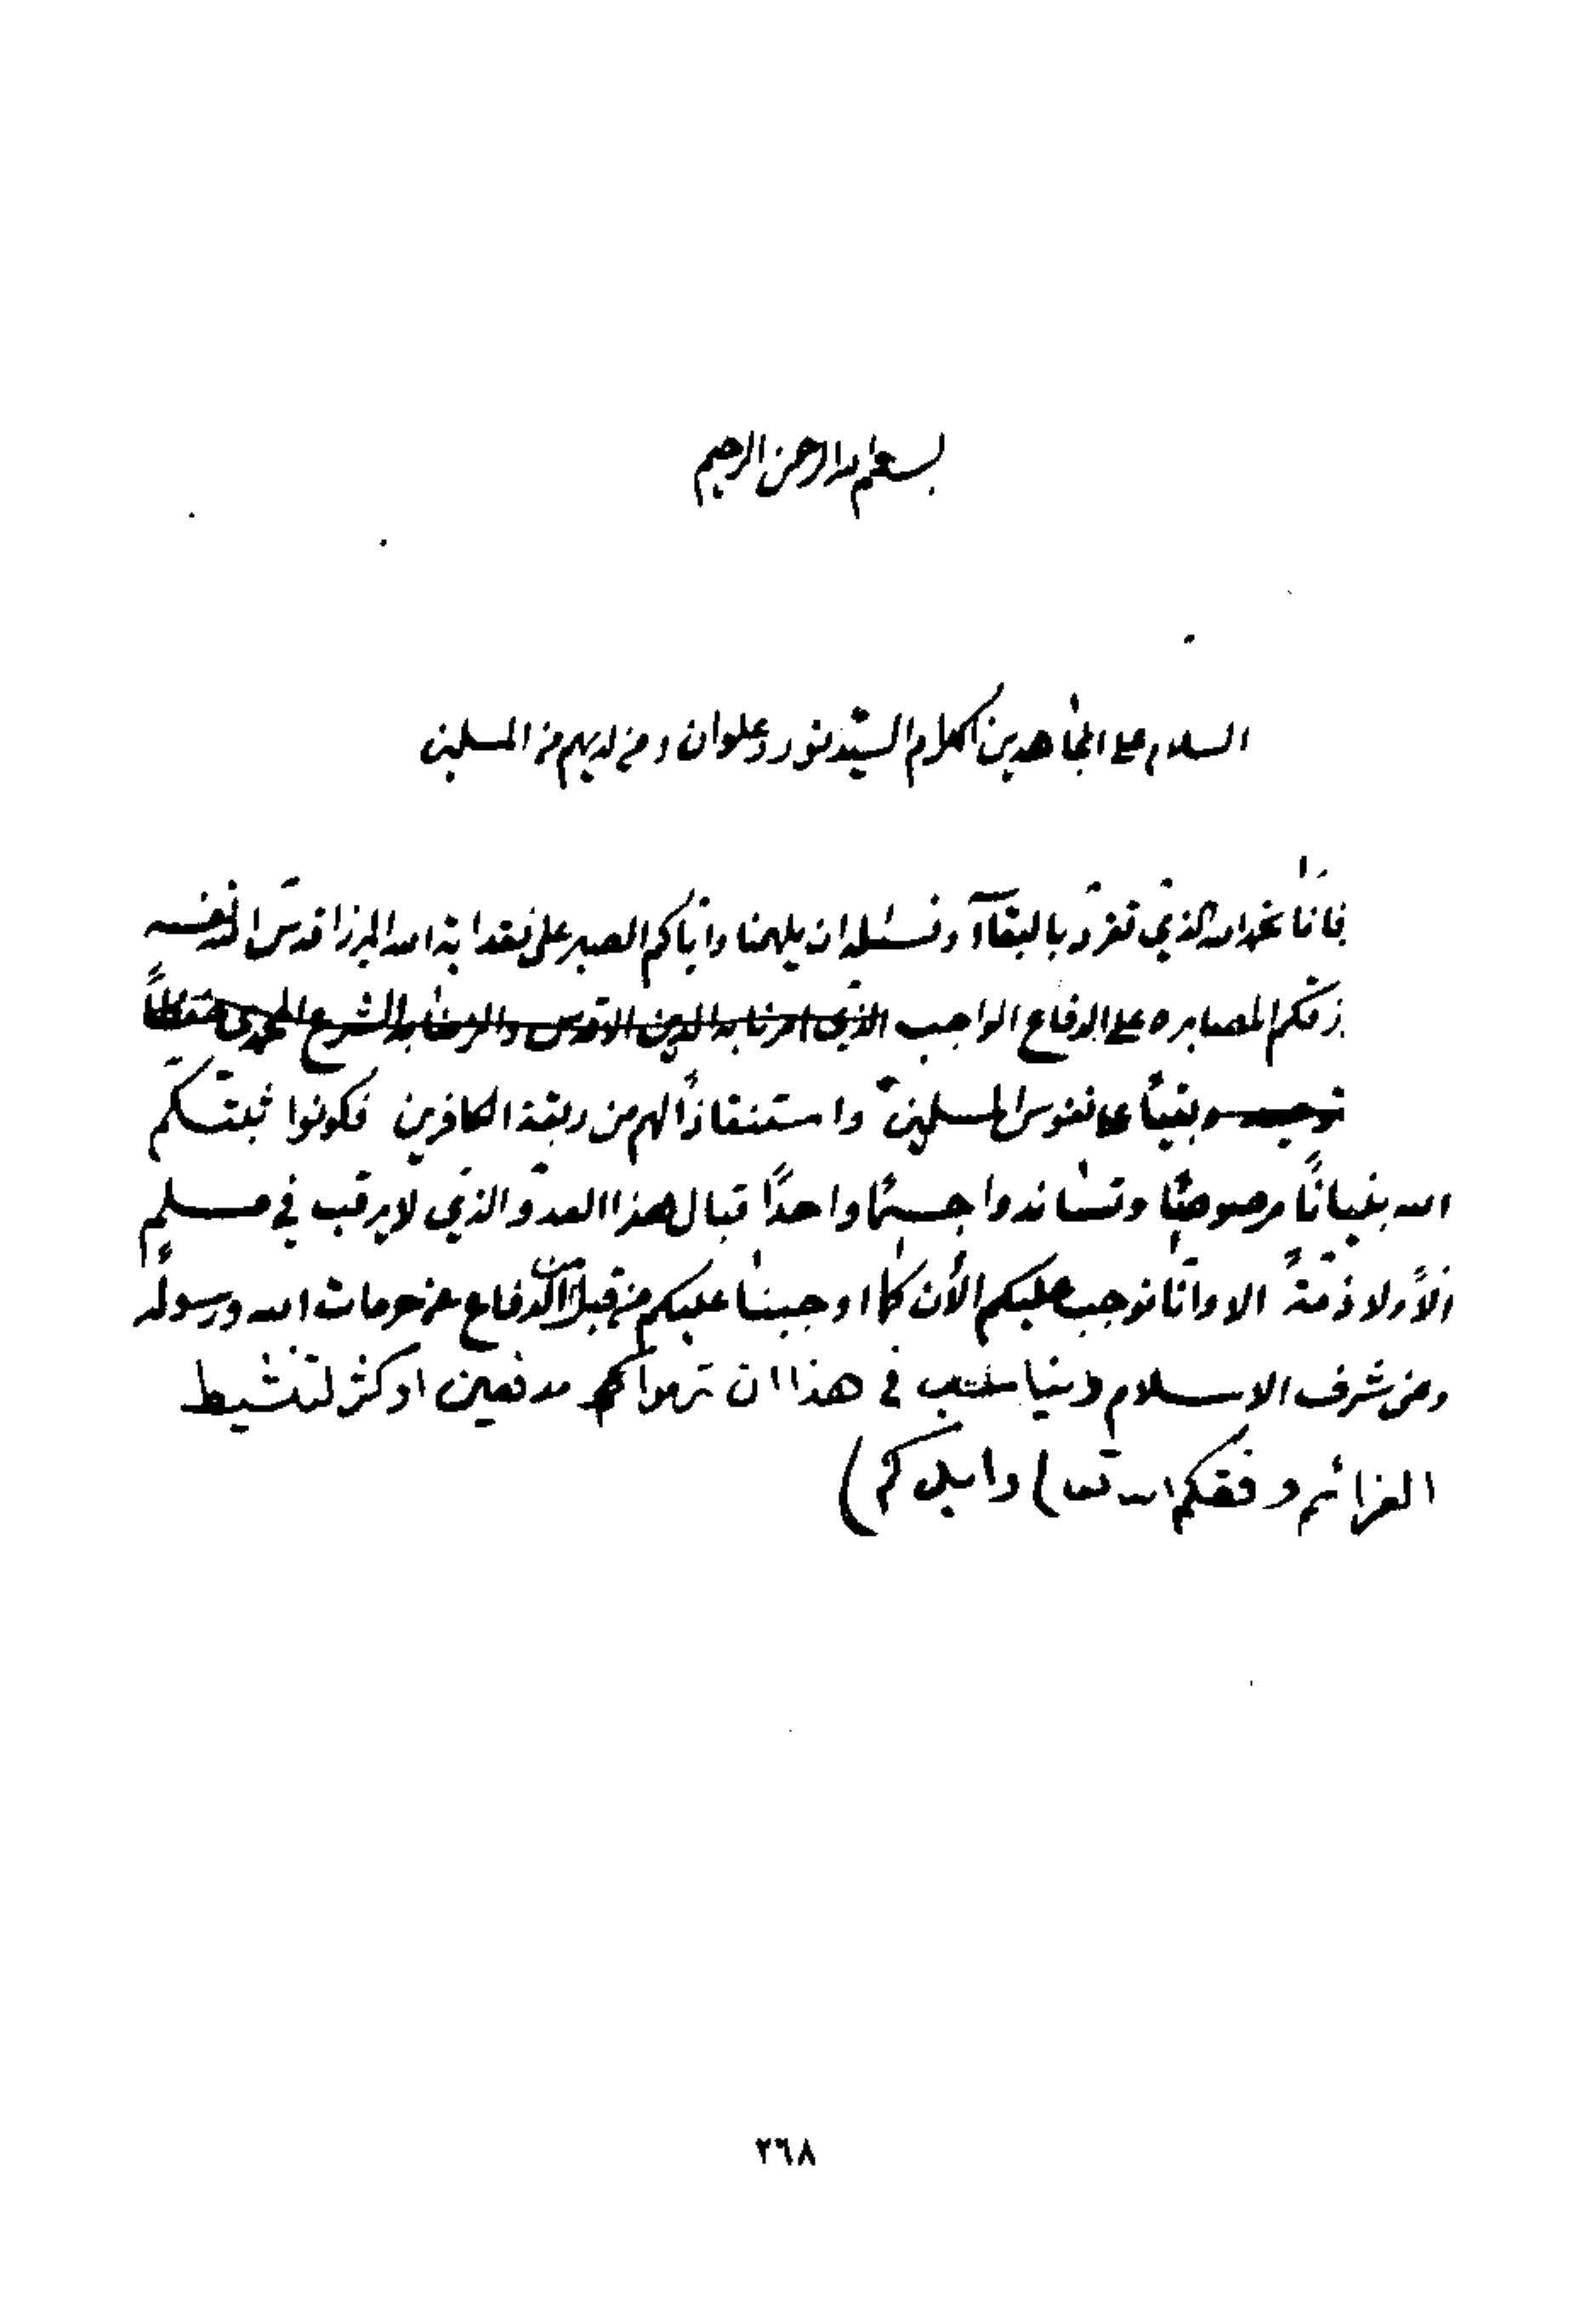 بسم الله الرحمن الرحيم
السلام على المجاهدين الكرام السيد نور وعلوان ومن لديهم من المسلمين
فانا نحمد الله الذي تفرد بالبقاء ونسئله ان يلهمنا واياكم الصبر على فقد اية الله الميرزا قدس الله نفسه
المصابره على الدفاع الواجب الذي امرنا به الدين الاقدس والشرع المحمدي
على نفوس المسلمين واستنقاذاً لهم من ربقة الكافرين فكونوا ثبتكم
الله بنياناً مرصوصاً وتساندوا جسماً واحداً قبال هذا العدو الذي لا يرقب في مسلم
الاً ولا ذمةً الا وانا نوجب عليكم الأن كما اوجبنا عليكم من قبل الدفاع عن حرمات الله ورسوله
وعن شرف الاسلام في هذا ان مدفعين او كثر لتنشيط
العزائم وفقكم الله تعا وايدكم)
٢٦٨